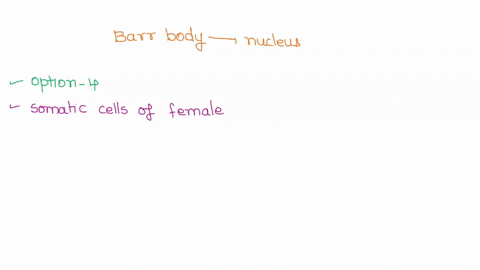 Barr body → nucleus
✓ option-4
✓ somatic cells of female